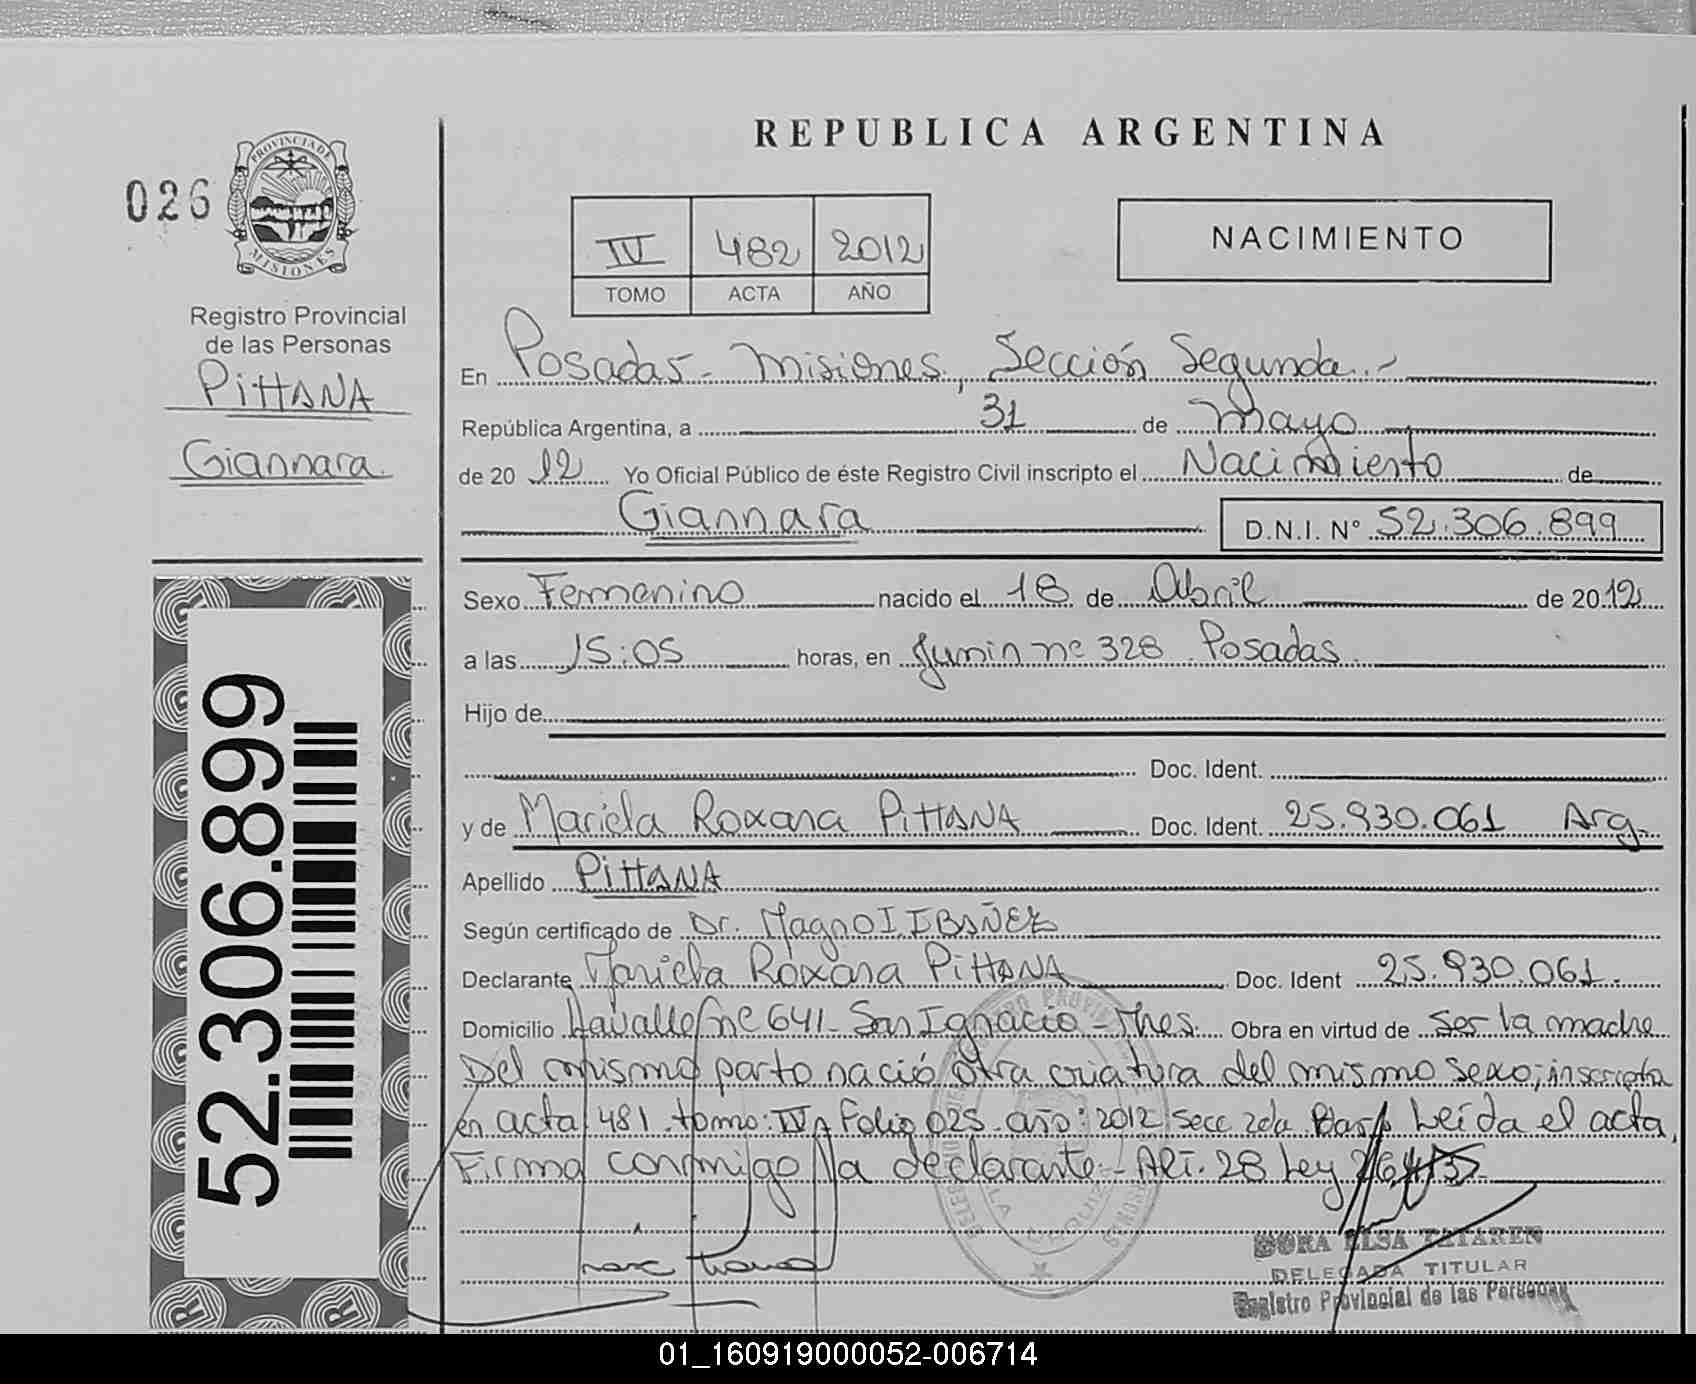 REPUBLICA ARGENTINA
026
PROVINCIA DE
MISIONES
Registro Provincial
de las Personas
PittANA
Giannara
IV 482 2012
TOMO ACTA AÑO
NACIMIENTO
En Posadas - Misiones, Sección Segunda.-
República Argentina, a 31 de Mayo
de 20 12 Yo Oficial Público de éste Registro Civil inscripto el Nacimiento de
Giannara D.N.I. Nº 52.306.899
Sexo Femenino nacido el 18 de Abril de 2012
a las 15:05 horas, en Junin nº 328 Posadas.
Hijo de
Doc. Ident.
y de Mariela Roxana PittANA Doc. Ident. 25.930.061 Arg.
Apellido PittANA
Según certificado de Dr. Magno I. IBAÑEZ
Declarante Mariela Roxana PittANA Doc. Ident 25.930.061.
Domicilio Lavalle nº 641 - San Ignacio - Mnes. Obra en virtud de ser la madre
Del mismo parto nació otra criatura del mismo sexo; inscripta
en acta 481. tomo: IV Folio 025. año: 2012 Secc 2da Leída el acta,
Firma conmigo la declarante - Art. 28 Ley
DORA ELSA TATAREN
DELEGADA TITULAR
Registro Provincial de las Personas
52.306.899
01_160919000052-006714